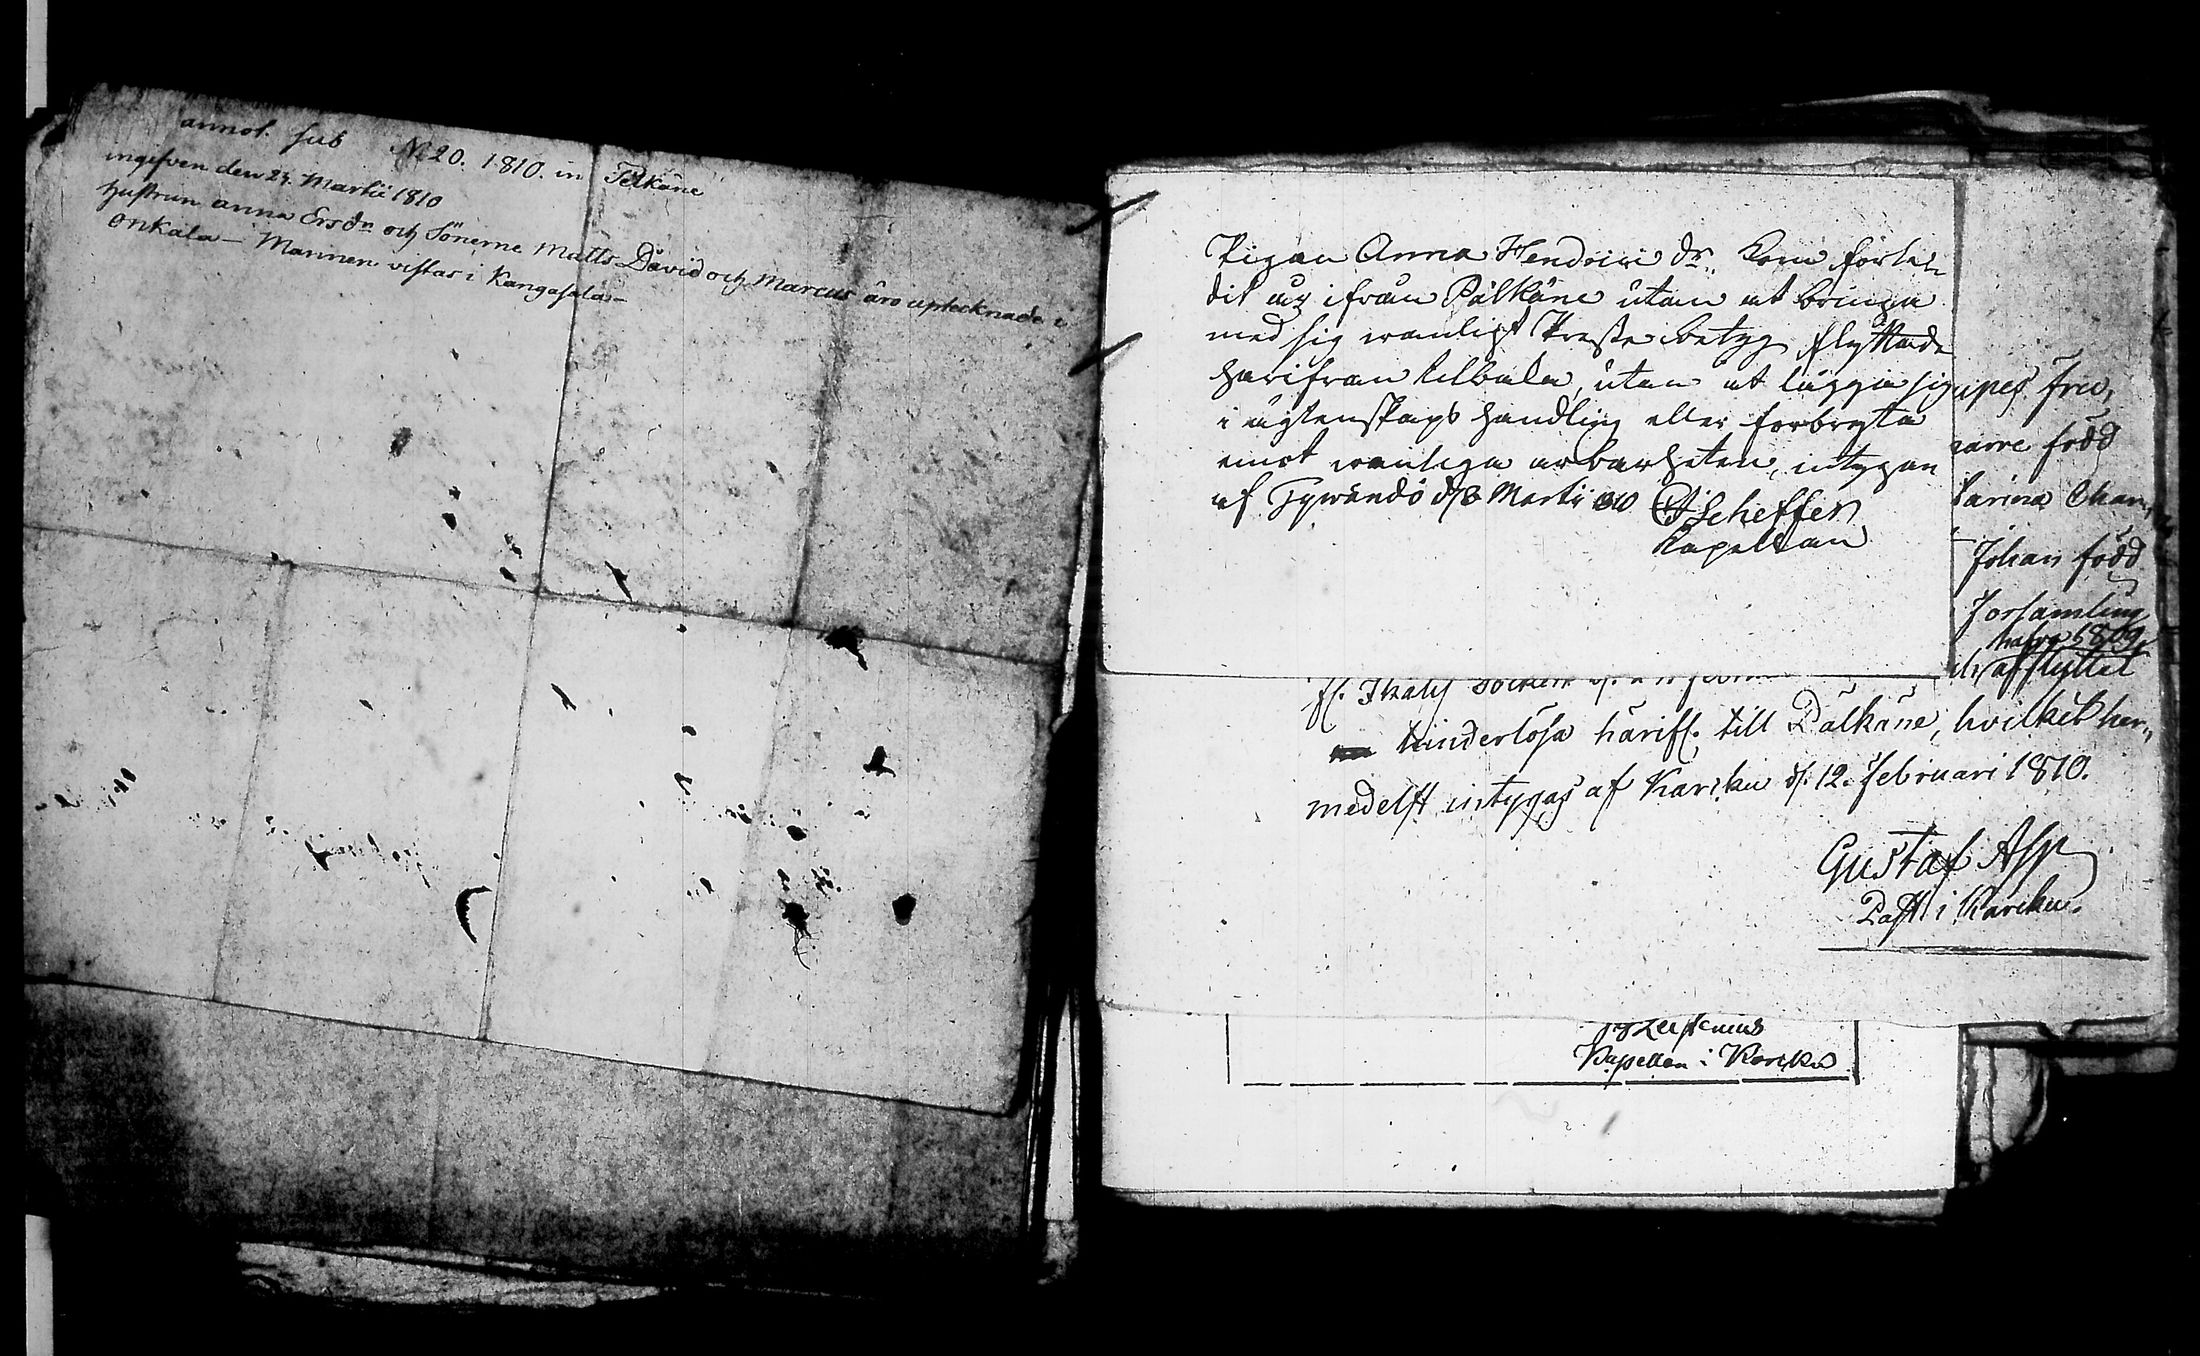 annot. sub No 20. 1810. in Pelkäne
ingifven den 24. Martii 1810
Hustrun anna Ersdr och Sönerne Matts David och Marcus äro uptecknade i
Onkala — Mannen vistas i Kangasala —
Pigan Anna Hendrici dr. kom förled
dit up ifrån Pälkäne utan at bringa
med sig wanligt Preste betyg flyttade
härifrån tilbaka, utan at läggia sig
i ägtenskaps handling eller förbryta
emot wanliga arbarheten, intygan
af Tywändö d. Martii 1810 Scheffer
Kapellan
apes frie,
narre född
Carina Chan,
Johan född
Forsamling
halfva 1809
afflyttet
fl. Ikalis Sockn
hinderlösa härifl. till Pälkäne, hvilket her„
medelst intygas af Karcku d. 12. Februari 1810.
Gustaf Asp
Past i Karcku.
Kapellan i Karcku